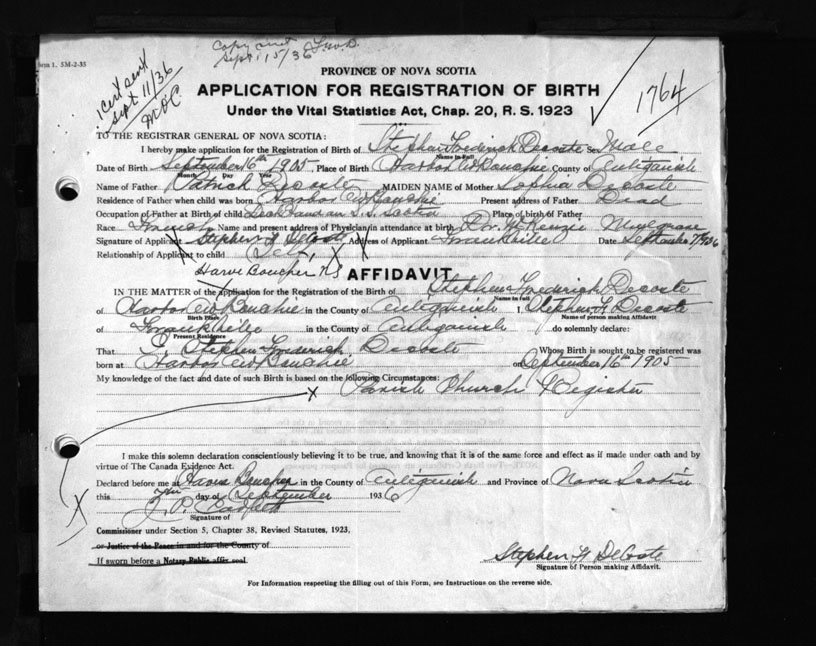 Form 1. 5M-2-35
Cert sent
Sept 11/36
Copy sent
Sept. 15/36
1764
PROVINCE OF NOVA SCOTIA
APPLICATION FOR REGISTRATION OF BIRTH
Under the Vital Statistics Act, Chap. 20, R. S. 1923
TO THE REGISTRAR GENERAL OF NOVA SCOTIA:
I hereby make application for the Registration of Birth of Stephen Frederick Decoste Sex Male
Name in Full
Date of Birth September 16th 1905, Place of Birth Harbor Au Bouchie County of Antigonish
Month Day Year
Name of Father Patrick Decoste MAIDEN NAME of Mother Sophia Decoste
Residence of Father when child was born Harbor Au Bouchie Present address of Father Dead
Occupation of Father at Birth of child Place of birth of Father
Race French Name and present address of Physician in attendance at birth Dr. McKenzie Mulgrave
Signature of Applicant Stephen F DeCoste Address of Applicant Frankville Date September 7/1936
Relationship of Applicant to child Self
Havre Boucher NS
AFFIDAVIT
IN THE MATTER of the Application for the Registration of the Birth of Stephen Frederick Decoste
Name in Full
of Harbor Au Bouchie in the County of Antigonish I, Stephen F Decoste
Birth Place Name of person making Affidavit
of Frankville in the County of Antigonish do solemnly declare:
Present Residence
That I, Stephen Frederick Decoste Whose Birth is sought to be registered was
born at Harbor Au Bouchie on September 16th 1905
My knowledge of the fact and date of such Birth is based on the following Circumstances:
x Parish Church Register
I make this solemn declaration conscientiously believing it to be true, and knowing that it is of the same force and effect as if made under oath and by
virtue of The Canada Evidence Act.
Declared before me at Havre Boucher in the County of Antigonish and Province of Nova Scotia
this 7th day of September 1936
Signature of
Commissioner under Section 5, Chapter 38, Revised Statutes, 1923.
or Justice of the Peace in and for the County of
If sworn before a Notary Public affix seal
Stephen F DeCoste
Signature of Person making Affidavit.
For Information respecting the filling out of this Form, see Instructions on the reverse side.